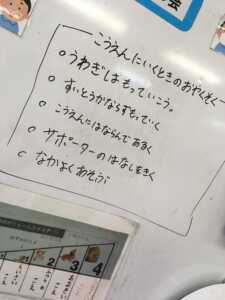 会
こうえんにいくときのおやくそく
うわぎはもっていこう。
すいとうかならずもっていく
こうえんにはならんであるく
サポーターのはなしをきく
なかよくあそぶ
1 2 3 4